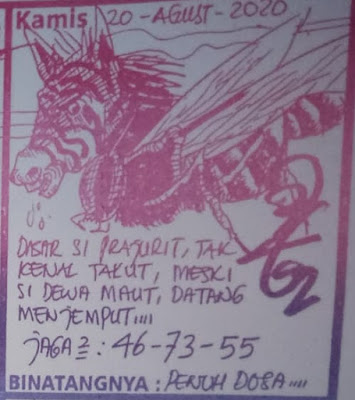 Kamis 20-AGUST-2020
DASAR SI PRAJURIT, TAK
KENAL TAKUT, MESKI
SI DEWA MAUT, DATANG
MENJEMPUT....
JAGA2: 46-73-55
BINATANGNYA: PENUH DOSA....